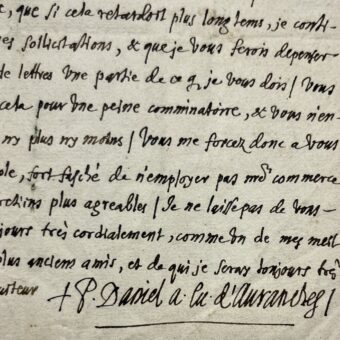 e, que si cela retardoit plus longtems, je conti-
es sollicitations, & que je vous ferois depenser
de lettres une partie de ce q. je vous dois / Vous
cela pour une peine comminatoire, & vous n'en
ny plus ny moins / Vous me forcez donc a vous
ole, fort fasché de n'employer pas nrẽ commerce
plus agreables / Je ne laisse pas de vous
jours trés cordialement, comme un de mes meil
plus anciens amis, et de qui je seray toujours trés
+ P. Daniel a. Ev. d'Avranches /